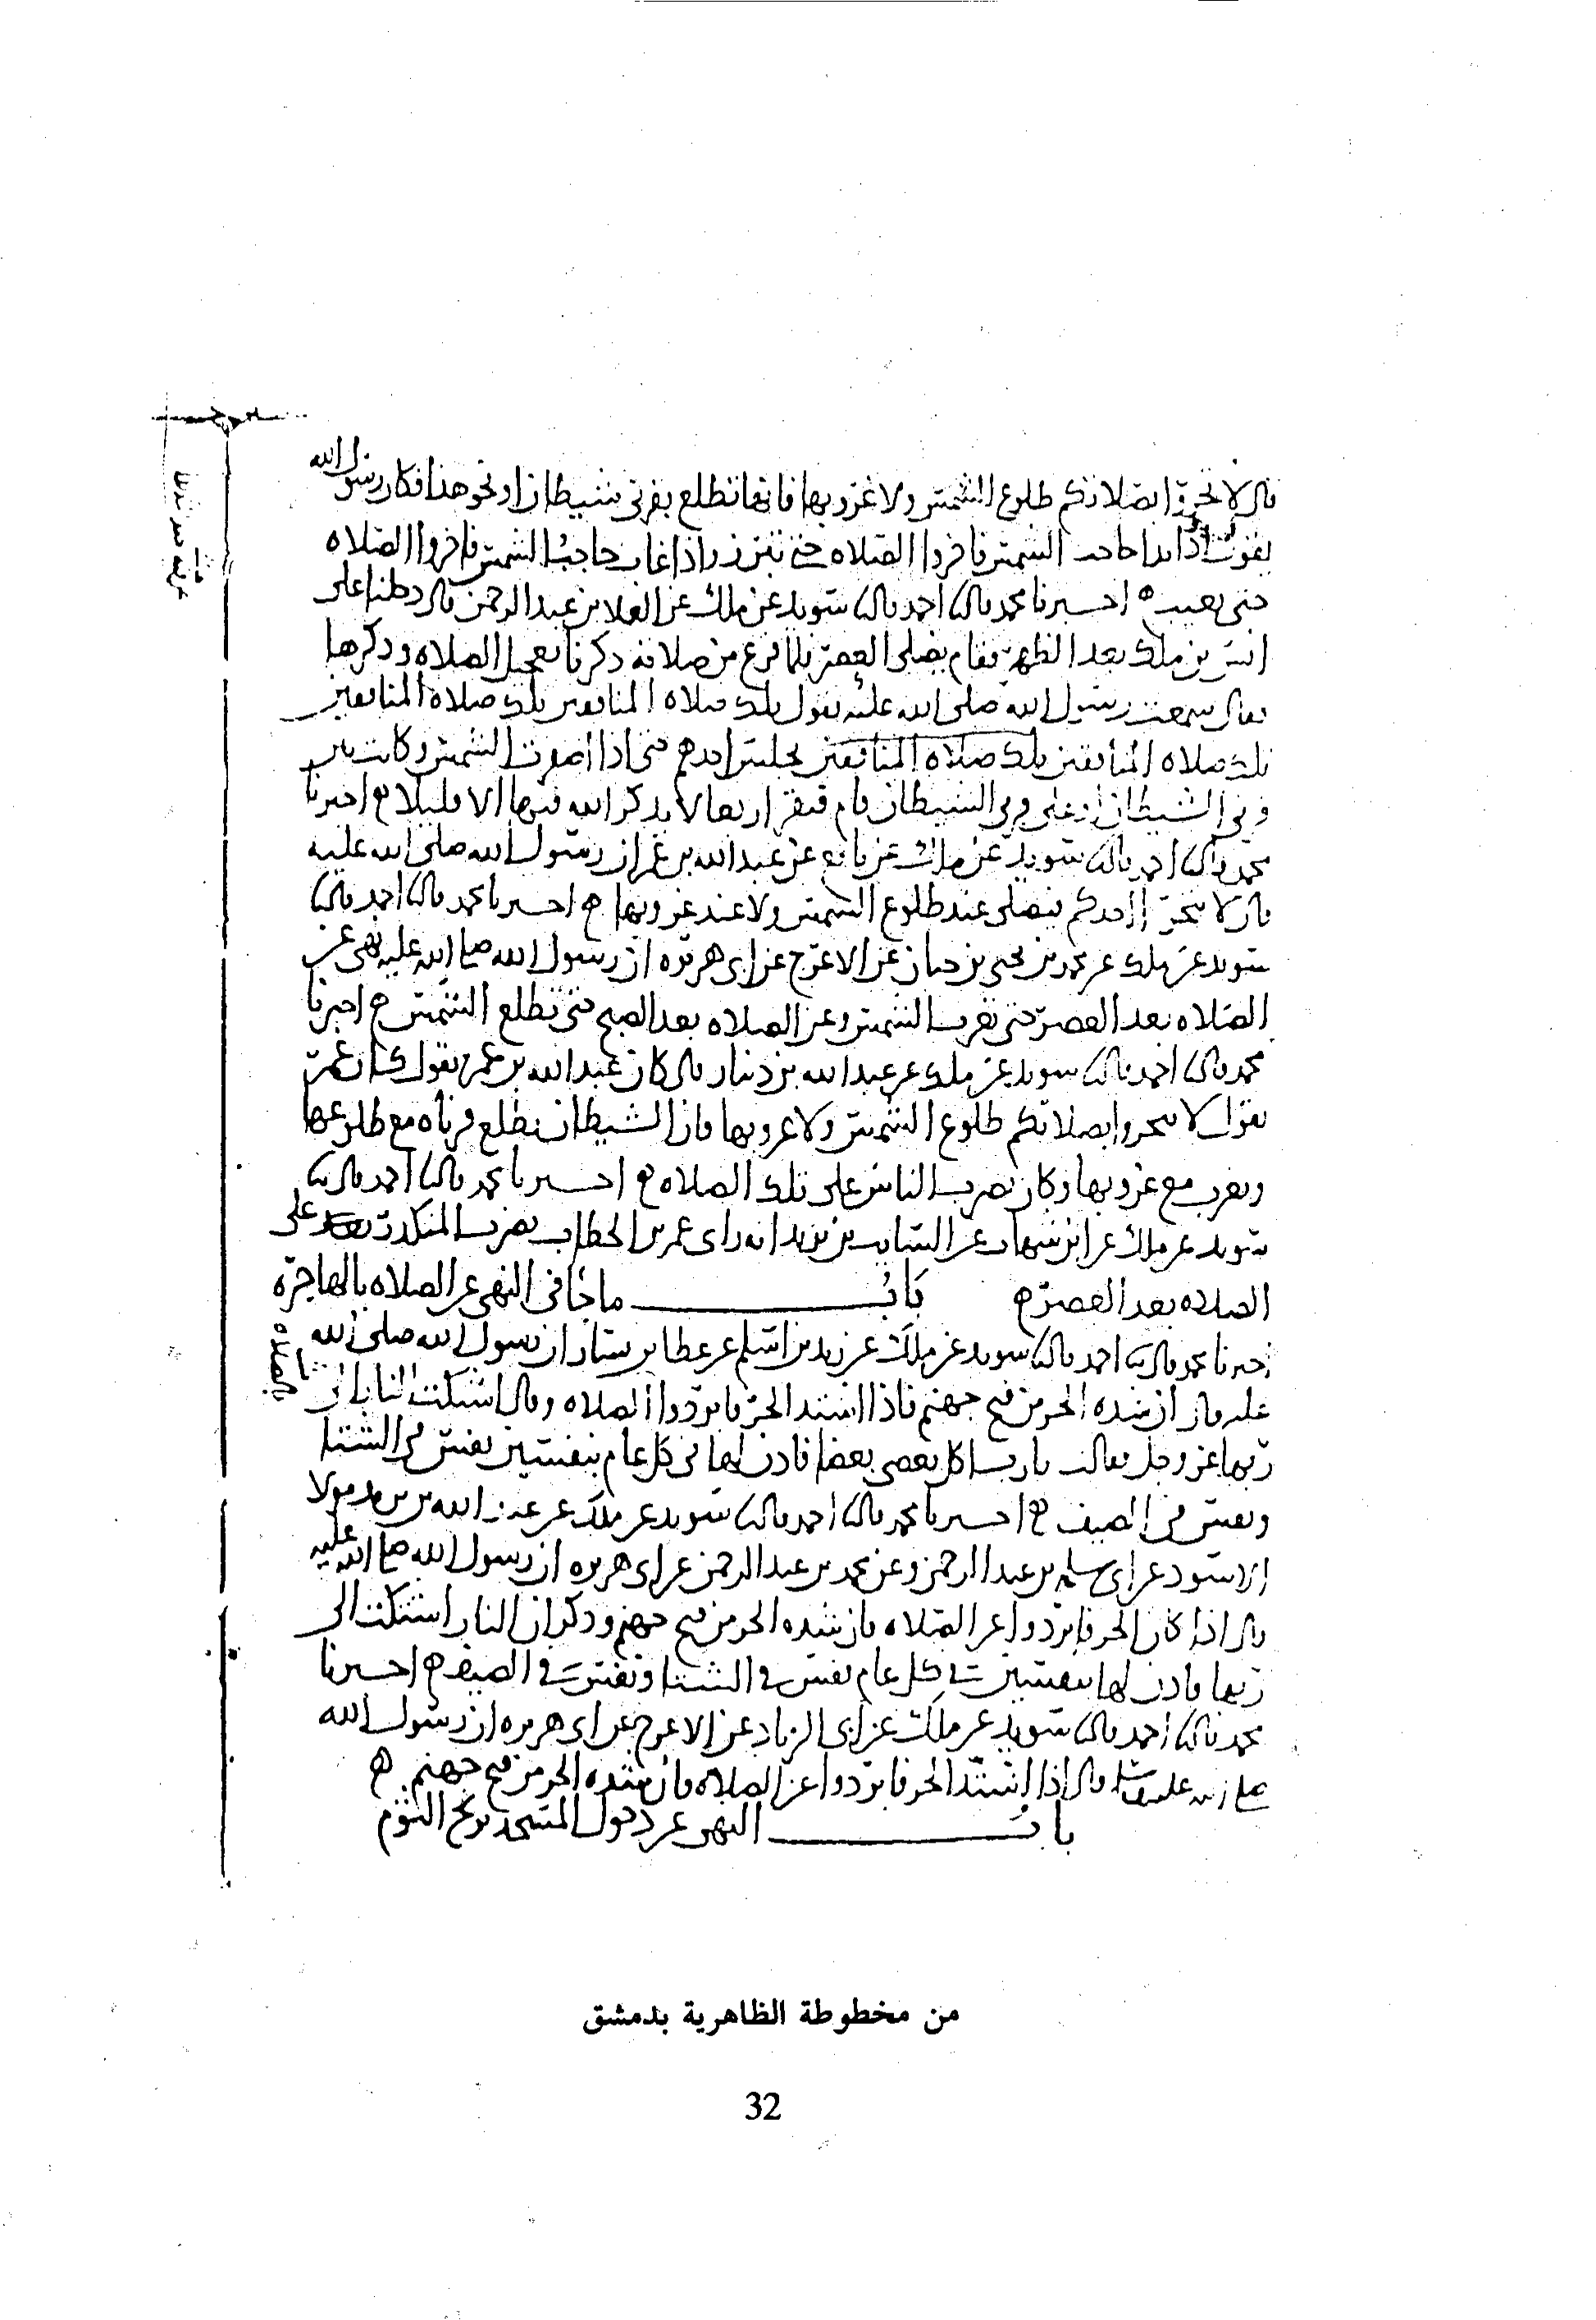 قال لا تحروا بصلاتكم طلوع الشمس ولا غروبها فانها تطلع بقرني شيطان او نحو هذا فكان رسول الله
يقول اذا بدا حاجب الشمس فاخروا الصلاه حتى تبرز واذا غاب حاجب الشمس فاخروا الصلاه
حتى تغيب ه اخبرنا محمد قال نا احمد قال نا سويد عن ملك عن العلا بن عبد الرحمن قال دخلنا على
انس بن ملك بعد الظهر فقام يصلي العصر فلما فرغ من صلاته ذكرنا تعجيل الصلاه وذكرها
فقال سمعت رسول الله صلى الله عليه يقول تلك صلاه المنافقين تلك صلاه المنافقين
تلك صلاه المنافقين تلك صلاه المنافقين يجلس احدهم حتى اذا اصفرت الشمس وكانت بين
قرني الشيطان او على قرني الشيطان قام فنقر اربعا لا يذكر الله فيها الا قليلا ه اخبرنا
محمد قال نا احمد قال نا سويد عن ملك عن نافع عن عبد الله بن عمر ان رسول الله صلى الله عليه
قال لا يتحرا احدكم فيصلي عند طلوع الشمس ولا عند غروبها ه اخبرنا محمد قال نا احمد قال نا
سويد عن ملك عن محمد بن يحيى بن حبان عن الاعرج عن ابي هريره ان رسول الله صلى الله عليه نهى عن
الصلاه بعد العصر حتى تغرب الشمس وعن الصلاه بعد الصبح حتى تطلع الشمس ه اخبرنا
محمد قال نا احمد قال نا سويد عن ملك عن عبد الله بن دينار قال كان عبد الله بن عمر يقول كان عمر
يقول لا تحروا بصلاتكم طلوع الشمس ولا غروبها فان الشيطان يطلع قرناه مع طلوعها
ويغرب مع غروبها وكان يضرب الناس على تلك الصلاه ه اخبرنا محمد قال نا احمد قال نا
سويد عن ملك عن ابن شهاب عن السايب بن يزيد انه راى عمر بن الخطاب يضرب المنكدر على
الصلاه بعد العصر ه باب ما جا في النهي عن الصلاه بالهاجره
اخبرنا محمد قال نا احمد قال نا سويد عن ملك عن زيد بن اسلم عن عطا بن يسار ان رسول الله صلى الله
عليه قال ان شده الحر من فيح جهنم فاذا اشتد الحر فابردوا الصلاه وقال اشتكت النار الى
ربها عز وجل فقالت يا رب اكل بعضي بعضا فاذن لها في كل عام بنفسين نفس في الشتا
ونفس في الصيف ه اخبرنا محمد قال نا احمد قال نا سويد عن ملك عن عبد الله بن يزيد مولا
الاسود عن ابي سلمه بن عبد الرحمن وعن محمد بن عبد الرحمن عن ابي هريره ان رسول الله صلى الله عليه
قال اذا كان الحر فابردوا عن الصلاه فان شده الحر من فيح جهنم وذكر ان النار اشتكت الى
ربها فاذن لها بنفسين في كل عام نفس في الشتا ونفس في الصيف ه اخبرنا
محمد قال نا احمد قال نا سويد عن ملك عن ابي الزناد عن الاعرج عن ابي هريره ان رسول الله
صلى الله عليه قال اذا اشتد الحر فابردوا عن الصلاه فان شده الحر من فيح جهنم ه
باب النهي عن دخول المسجد بريح الثوم
بالصلاه
من مخطوطة الظاهرية بدمشق
32